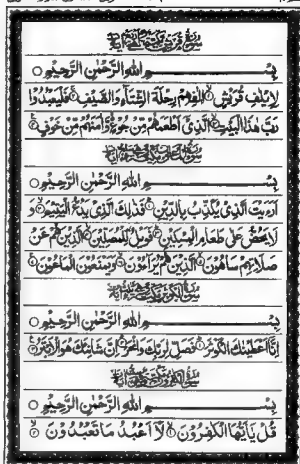 بِسْمِ اللهِ الرَّحْمٰنِ الرَّحِيْمِ
لِاِيْلٰفِ قُرَيْشٍ اٖلٰفِهِمْ رِحْلَةَ الشِّتَآءِ وَالصَّيْفِ فَلْيَعْبُدُوْا
رَبَّ هٰذَا الْبَيْتِ الَّذِيْٓ اَطْعَمَهُمْ مِّنْ جُوْعٍ وَّاٰمَنَهُمْ مِّنْ خَوْفٍ
بِسْمِ اللهِ الرَّحْمٰنِ الرَّحِيْمِ
اَرَءَيْتَ الَّذِيْ يُكَذِّبُ بِالدِّيْنِ فَذٰلِكَ الَّذِيْ يَدُعُّ الْيَتِيْمَ وَ
لَا يَحُضُّ عَلٰى طَعَامِ الْمِسْكِيْنِ فَوَيْلٌ لِّلْمُصَلِّيْنَ الَّذِيْنَ هُمْ عَنْ
صَلَاتِهِمْ سَاهُوْنَ الَّذِيْنَ هُمْ يُرَآءُوْنَ وَيَمْنَعُوْنَ الْمَاعُوْنَ
بِسْمِ اللهِ الرَّحْمٰنِ الرَّحِيْمِ
اِنَّآ اَعْطَيْنٰكَ الْكَوْثَرَ فَصَلِّ لِرَبِّكَ وَانْحَرْ اِنَّ شَانِئَكَ هُوَ الْاَبْتَرُ
بِسْمِ اللهِ الرَّحْمٰنِ الرَّحِيْمِ
قُلْ يٰٓاَيُّهَا الْكٰفِرُوْنَ لَآ اَعْبُدُ مَا تَعْبُدُوْنَ